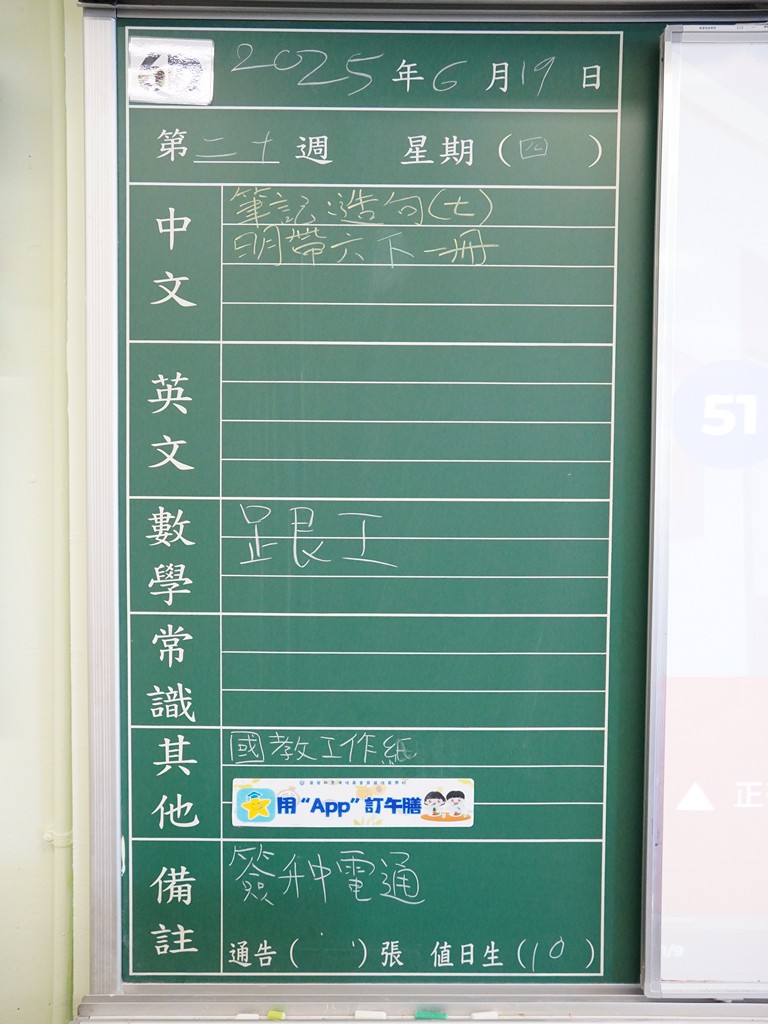 2025年6月19日
第二十週 星期(四)
中文
筆記:造句(七)
明帶六下一冊
英文
數學
跟工
常識
其他
國教工作紙
用“App”訂午膳
備註
簽种電通
通告( )張 值日生(10)
51
正